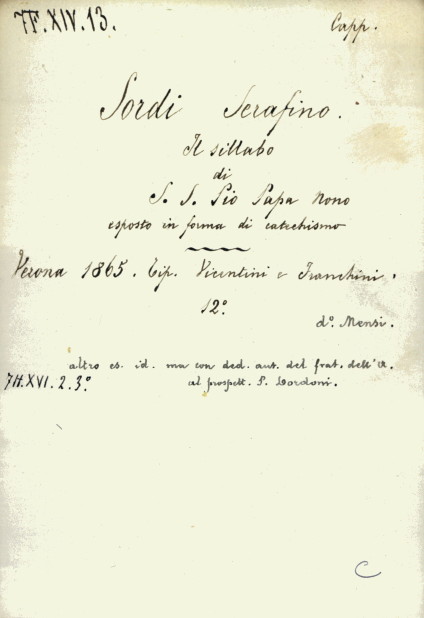 7F.XIV.13.
Capp.
Sordi Serafino.
Il sillabo
di
S. S. Pio Papa Nono
esposto in forma di catechismo
Verona 1865. Tip. Vicentini e Franchini.
12º
dº. Mensi.
altro es. id. ma con ded. aut. del frat. dell'A.
7H.XVI.2.3º al prospett. P. Dordoni.
C